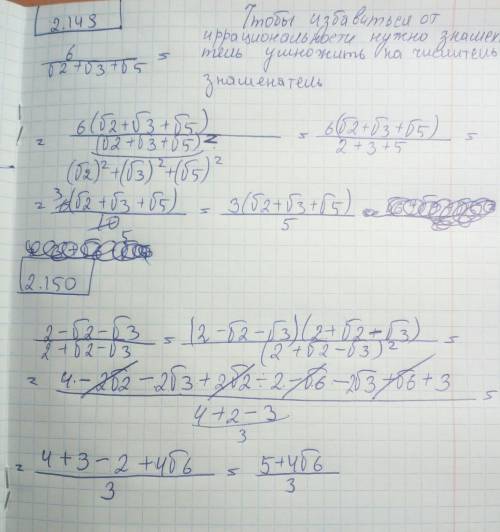 2.149
Чтобы избавиться от
иррациональности нужно знамен
тель умножить на числитель
знаменатель
6/(√2+√3+√5) =
= 6(√2+√3+√5)/(√2+√3+√5)² = 6(√2+√3+√5)/(2+3+5) =
(√2)²+(√3)²+(√5)²
= 6(√2+√3+√5)/10 = 3(√2+√3+√5)/5
2.150
(2-√2-√3)/(2+√2-√3) = (2-√2-√3)(2+√2-√3)/(2+√2-√3)² =
= (4-2√2-2√3+2√2-2-√6-2√3+√6+3)/(4+2-3) =
3
= (4+3-2+4√6)/3 = (5+4√6)/3